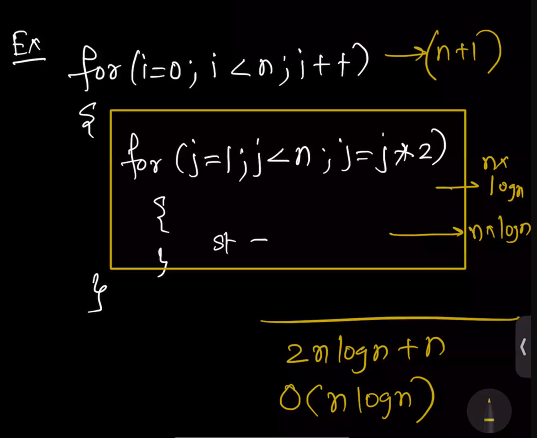 Ex
for(i=0; i<n; i++) → (n+1)
{
for (j=1; j<n; j=j*2)
→ n×
logn
{
st → n×logn
}
}
2nlogn+n
O(nlogn)